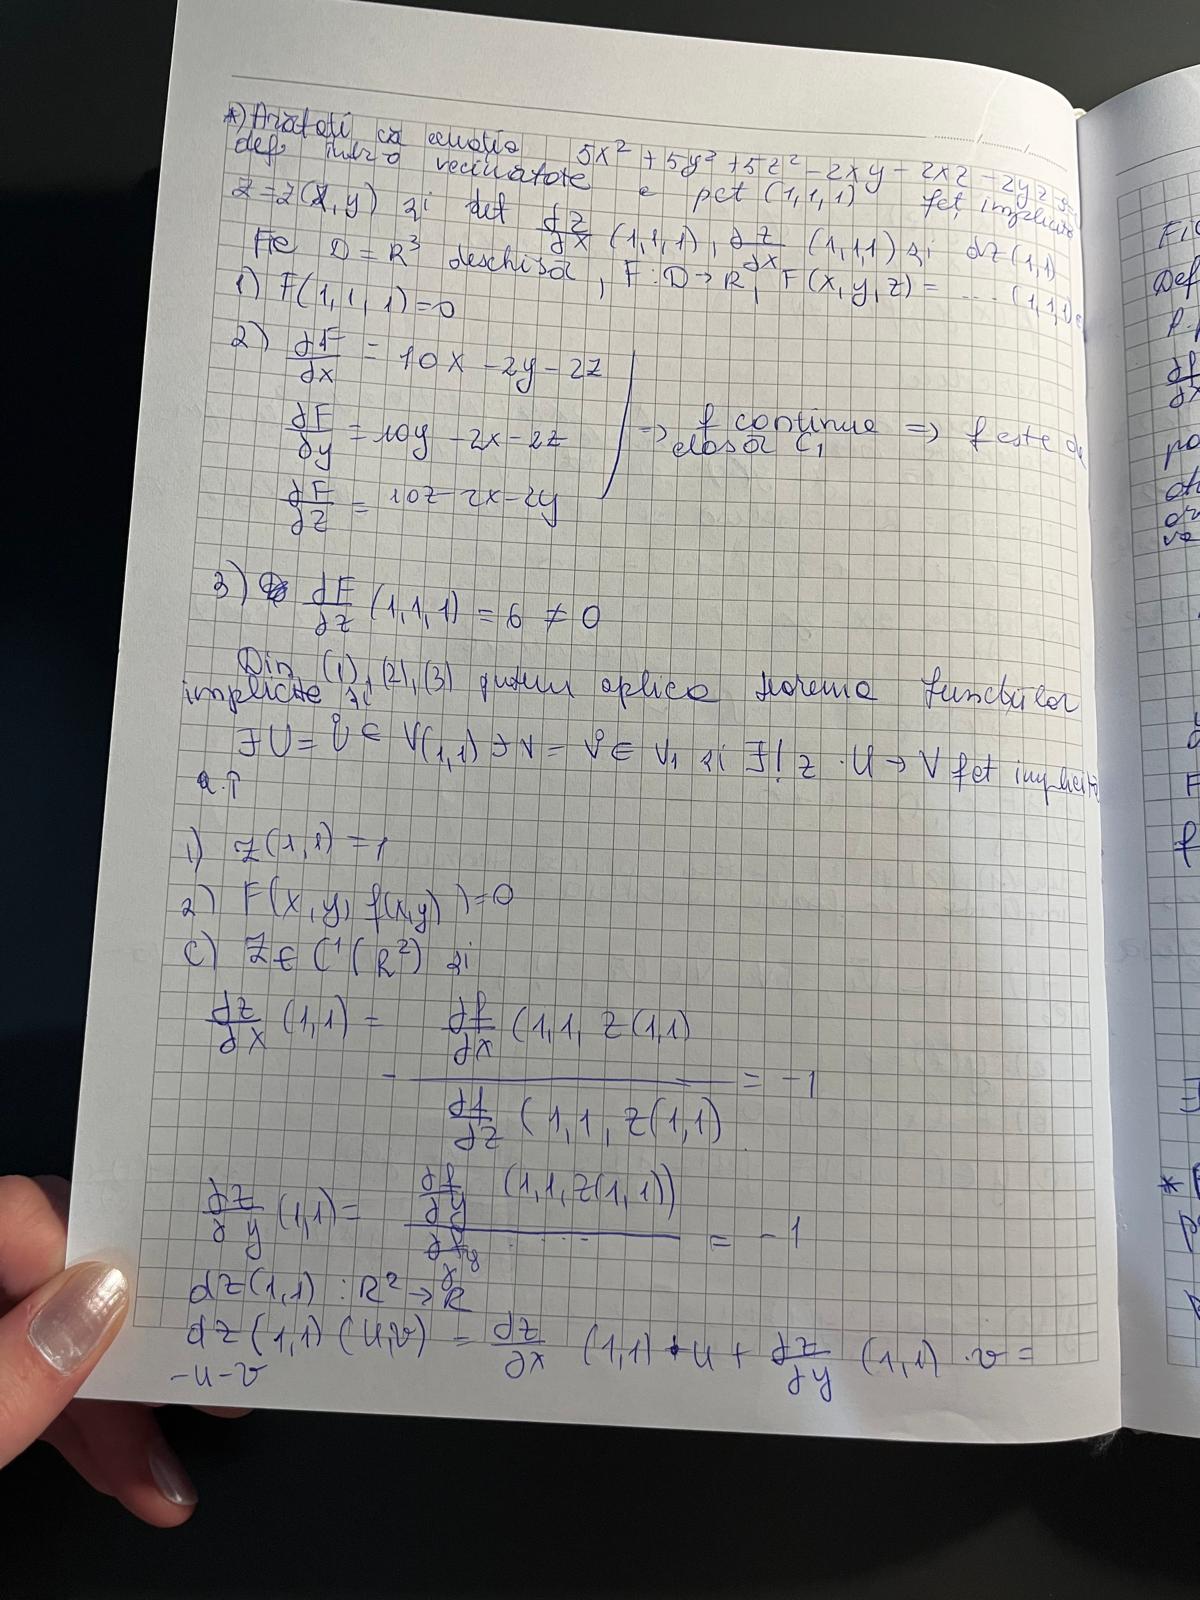 *) Arătați că ecuația 5x² + 5y² + 5z² - 2xy - 2xz - 2yz - 9=0
def. într-o vecinătate a pct (1,1,1) fct implicită
z = z(x,y) și det ∂z/∂x (1,1,1), ∂z/∂x (1,1,1) și dz(1,1)
Fie D = R³ deschisă, F: D → R, F(x,y,z) = ... (1,1,1)
1) F(1,1,1)=0
2) ∂F/∂x = 10x - 2y - 2z
∂F/∂y = 10y - 2x - 2z => f continue => f este de
clasă C₁
∂F/∂z = 10z - 2x - 2y
3) ∂F/∂z (1,1,1) = 6 ≠ 0
Din (1), (2), (3) putem aplica teorema funcțiilor
implicite și
∃ U = Ů ∈ V(1,1) ∃ V = V̊ ∈ V₁ și ∃! z : U → V fct implicită
a.î
1) z(1,1) = 1
2) F(x, y, f(x,y)) = 0
c) z ∈ C¹(R²) și
∂z/∂x (1,1) = - ∂f/∂x (1,1, z(1,1) / ∂f/∂z (1,1, z(1,1) = -1
∂z/∂y (1,1) = ∂f/∂y (1,1,z(1,1)) / ... = -1
dz(1,1) : R² → R
dz(1,1) (u,v) = ∂z/∂x (1,1) · u + ∂z/∂y (1,1) · v =
-u-v